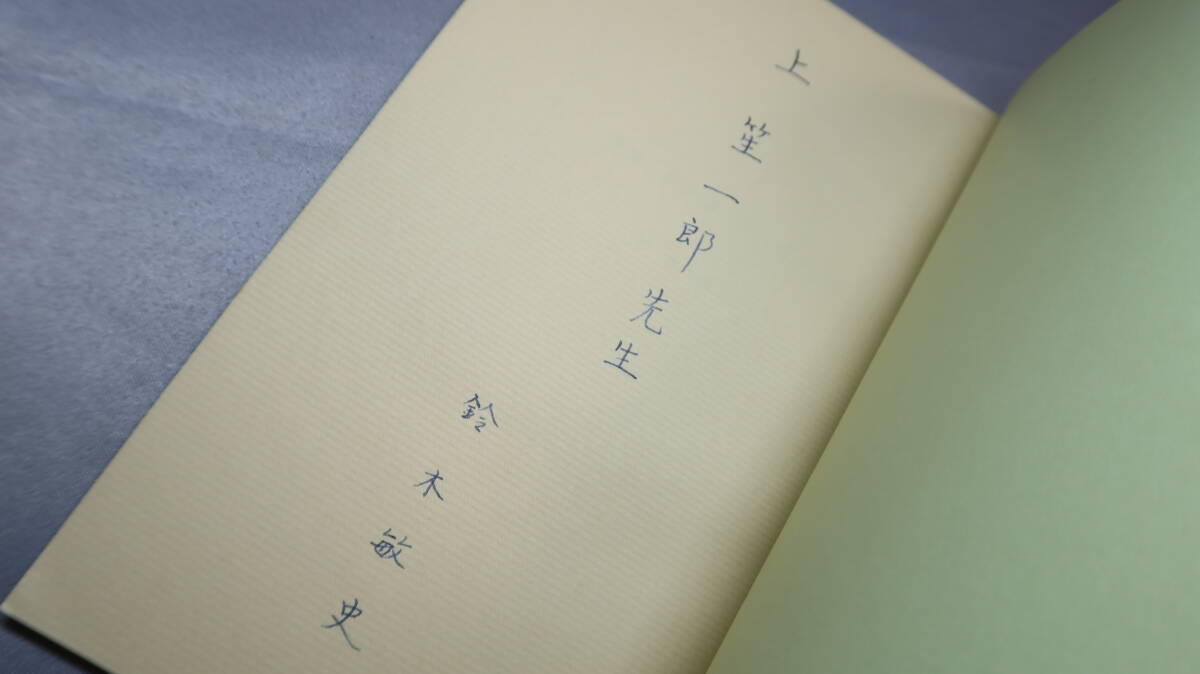 上笙一郎先生
鈴木敏史